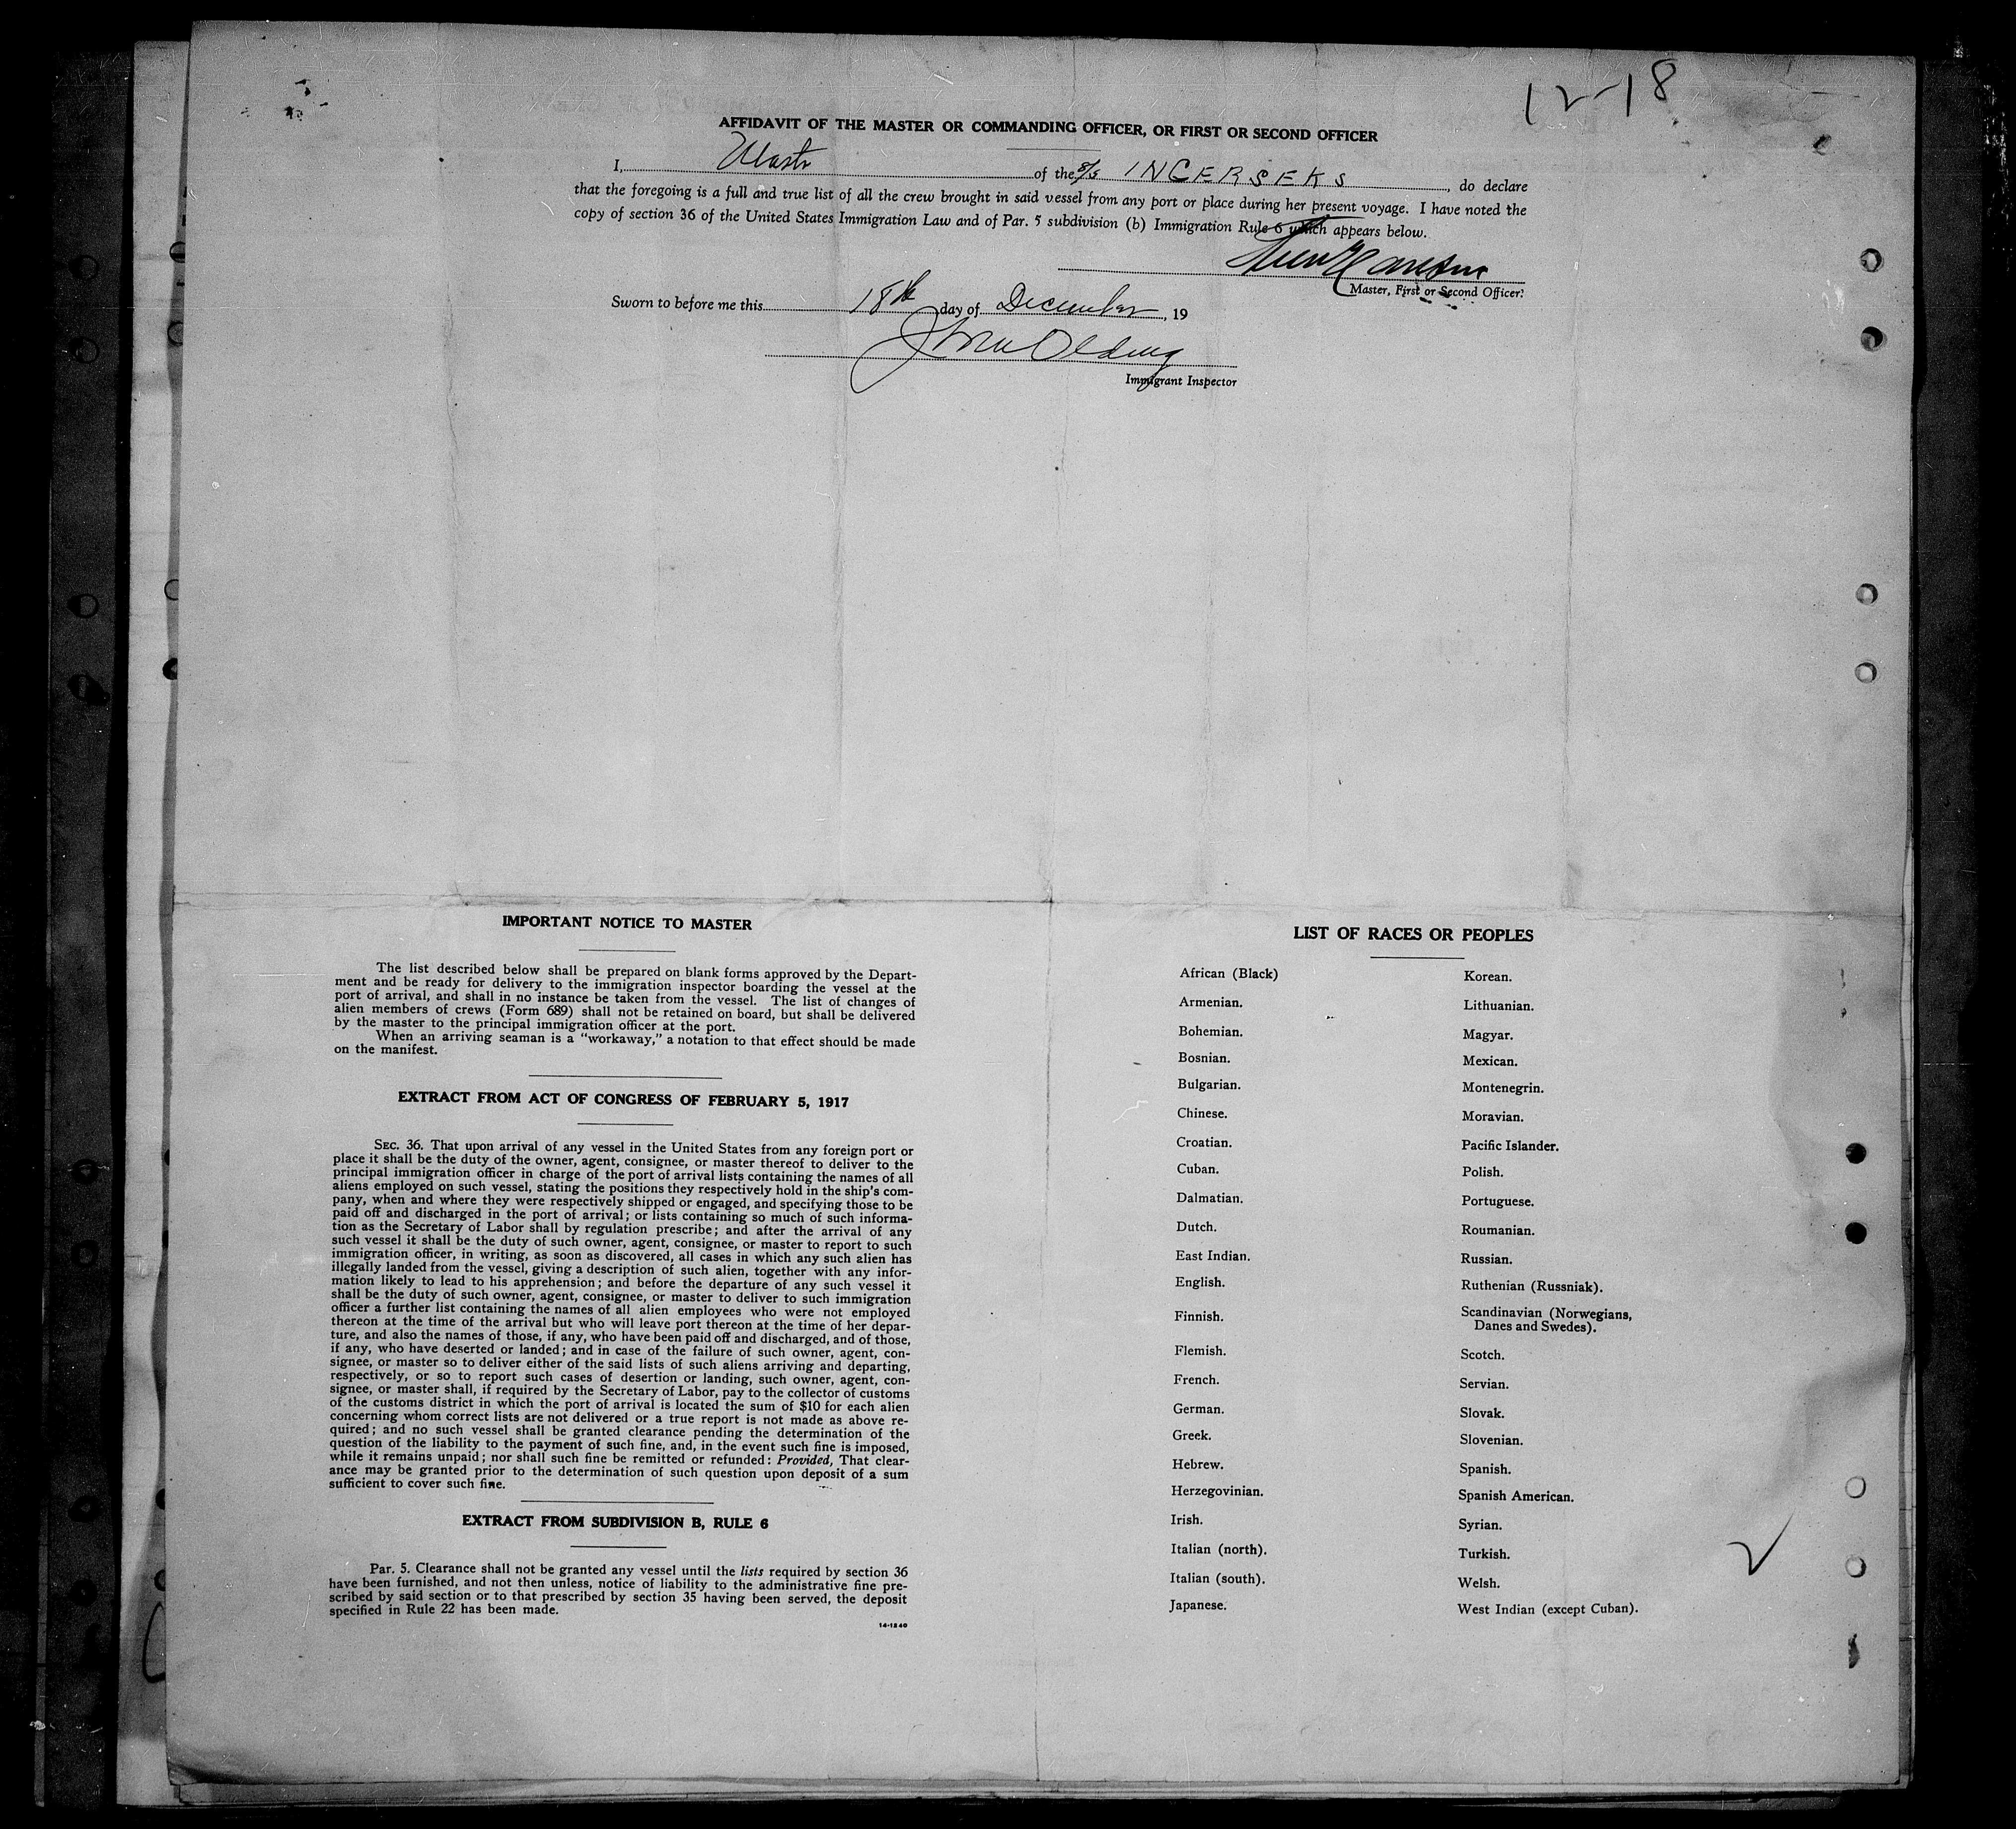 12-18
AFFIDAVIT OF THE MASTER OR COMMANDING OFFICER, OR FIRST OR SECOND OFFICER
I, Mastr of the S/S INGERSEKS, do declare
that the foregoing is a full and true list of all the crew brought in said vessel from any port or place during her present voyage. I have noted the
copy of section 36 of the United States Immigration Law and of Par. 5 subdivision (b) Immigration Rule 6 which appears below.
Master, First or Second Officer.
Sworn to before me this 18th day of December, 19
Immigrant Inspector
IMPORTANT NOTICE TO MASTER
The list described below shall be prepared on blank forms approved by the Depart-
ment and be ready for delivery to the immigration inspector boarding the vessel at the
port of arrival, and shall in no instance be taken from the vessel. The list of changes of
alien members of crews (Form 689) shall not be retained on board, but shall be delivered
by the master to the principal immigration officer at the port.
When an arriving seaman is a "workaway," a notation to that effect should be made
on the manifest.
EXTRACT FROM ACT OF CONGRESS OF FEBRUARY 5, 1917
SEC. 36. That upon arrival of any vessel in the United States from any foreign port or
place it shall be the duty of the owner, agent, consignee, or master thereof to deliver to the
principal immigration officer in charge of the port of arrival lists containing the names of all
aliens employed on such vessel, stating the positions they respectively hold in the ship's com-
pany, when and where they were respectively shipped or engaged, and specifying those to be
paid off and discharged in the port of arrival; or lists containing so much of such informa-
tion as the Secretary of Labor shall by regulation prescribe; and after the arrival of any
such vessel it shall be the duty of such owner, agent, consignee, or master to report to such
immigration officer, in writing, as soon as discovered, all cases in which any such alien has
illegally landed from the vessel, giving a description of such alien, together with any infor-
mation likely to lead to his apprehension; and before the departure of any such vessel it
shall be the duty of such owner, agent, consignee, or master to deliver to such immigration
officer a further list containing the names of all alien employees who were not employed
thereon at the time of the arrival but who will leave port thereon at the time of her depar-
ture, and also the names of those, if any, who have been paid off and discharged, and of those,
if any, who have deserted or landed; and in case of the failure of such owner, agent, con-
signee, or master so to deliver either of the said lists of such aliens arriving and departing,
respectively, or so to report such cases of desertion or landing, such owner, agent, con-
signee, or master shall, if required by the Secretary of Labor, pay to the collector of customs
of the customs district in which the port of arrival is located the sum of $10 for each alien
concerning whom correct lists are not delivered or a true report is not made as above re-
quired; and no such vessel shall be granted clearance pending the determination of the
question of the liability to the payment of such fine, and, in the event such fine is imposed,
while it remains unpaid; nor shall such fine be remitted or refunded: Provided, That clear-
ance may be granted prior to the determination of such question upon deposit of a sum
sufficient to cover such fine.
EXTRACT FROM SUBDIVISION B, RULE 6
Par. 5. Clearance shall not be granted any vessel until the lists required by section 36
have been furnished, and not then unless, notice of liability to the administrative fine pre-
scribed by said section or to that prescribed by section 35 having been served, the deposit
specified in Rule 22 has been made.
14-1240
LIST OF RACES OR PEOPLES
African (Black)
Armenian.
Bohemian.
Bosnian.
Bulgarian.
Chinese.
Croatian.
Cuban.
Dalmatian.
Dutch.
East Indian.
English.
Finnish.
Flemish.
French.
German.
Greek.
Hebrew.
Herzegovinian.
Irish.
Italian (north).
Italian (south).
Japanese.
Korean.
Lithuanian.
Magyar.
Mexican.
Montenegrin.
Moravian.
Pacific Islander.
Polish.
Portuguese.
Roumanian.
Russian.
Ruthenian (Russniak).
Scandinavian (Norwegians,
Danes and Swedes).
Scotch.
Servian.
Slovak.
Slovenian.
Spanish.
Spanish American.
Syrian.
Turkish.
Welsh.
West Indian (except Cuban).